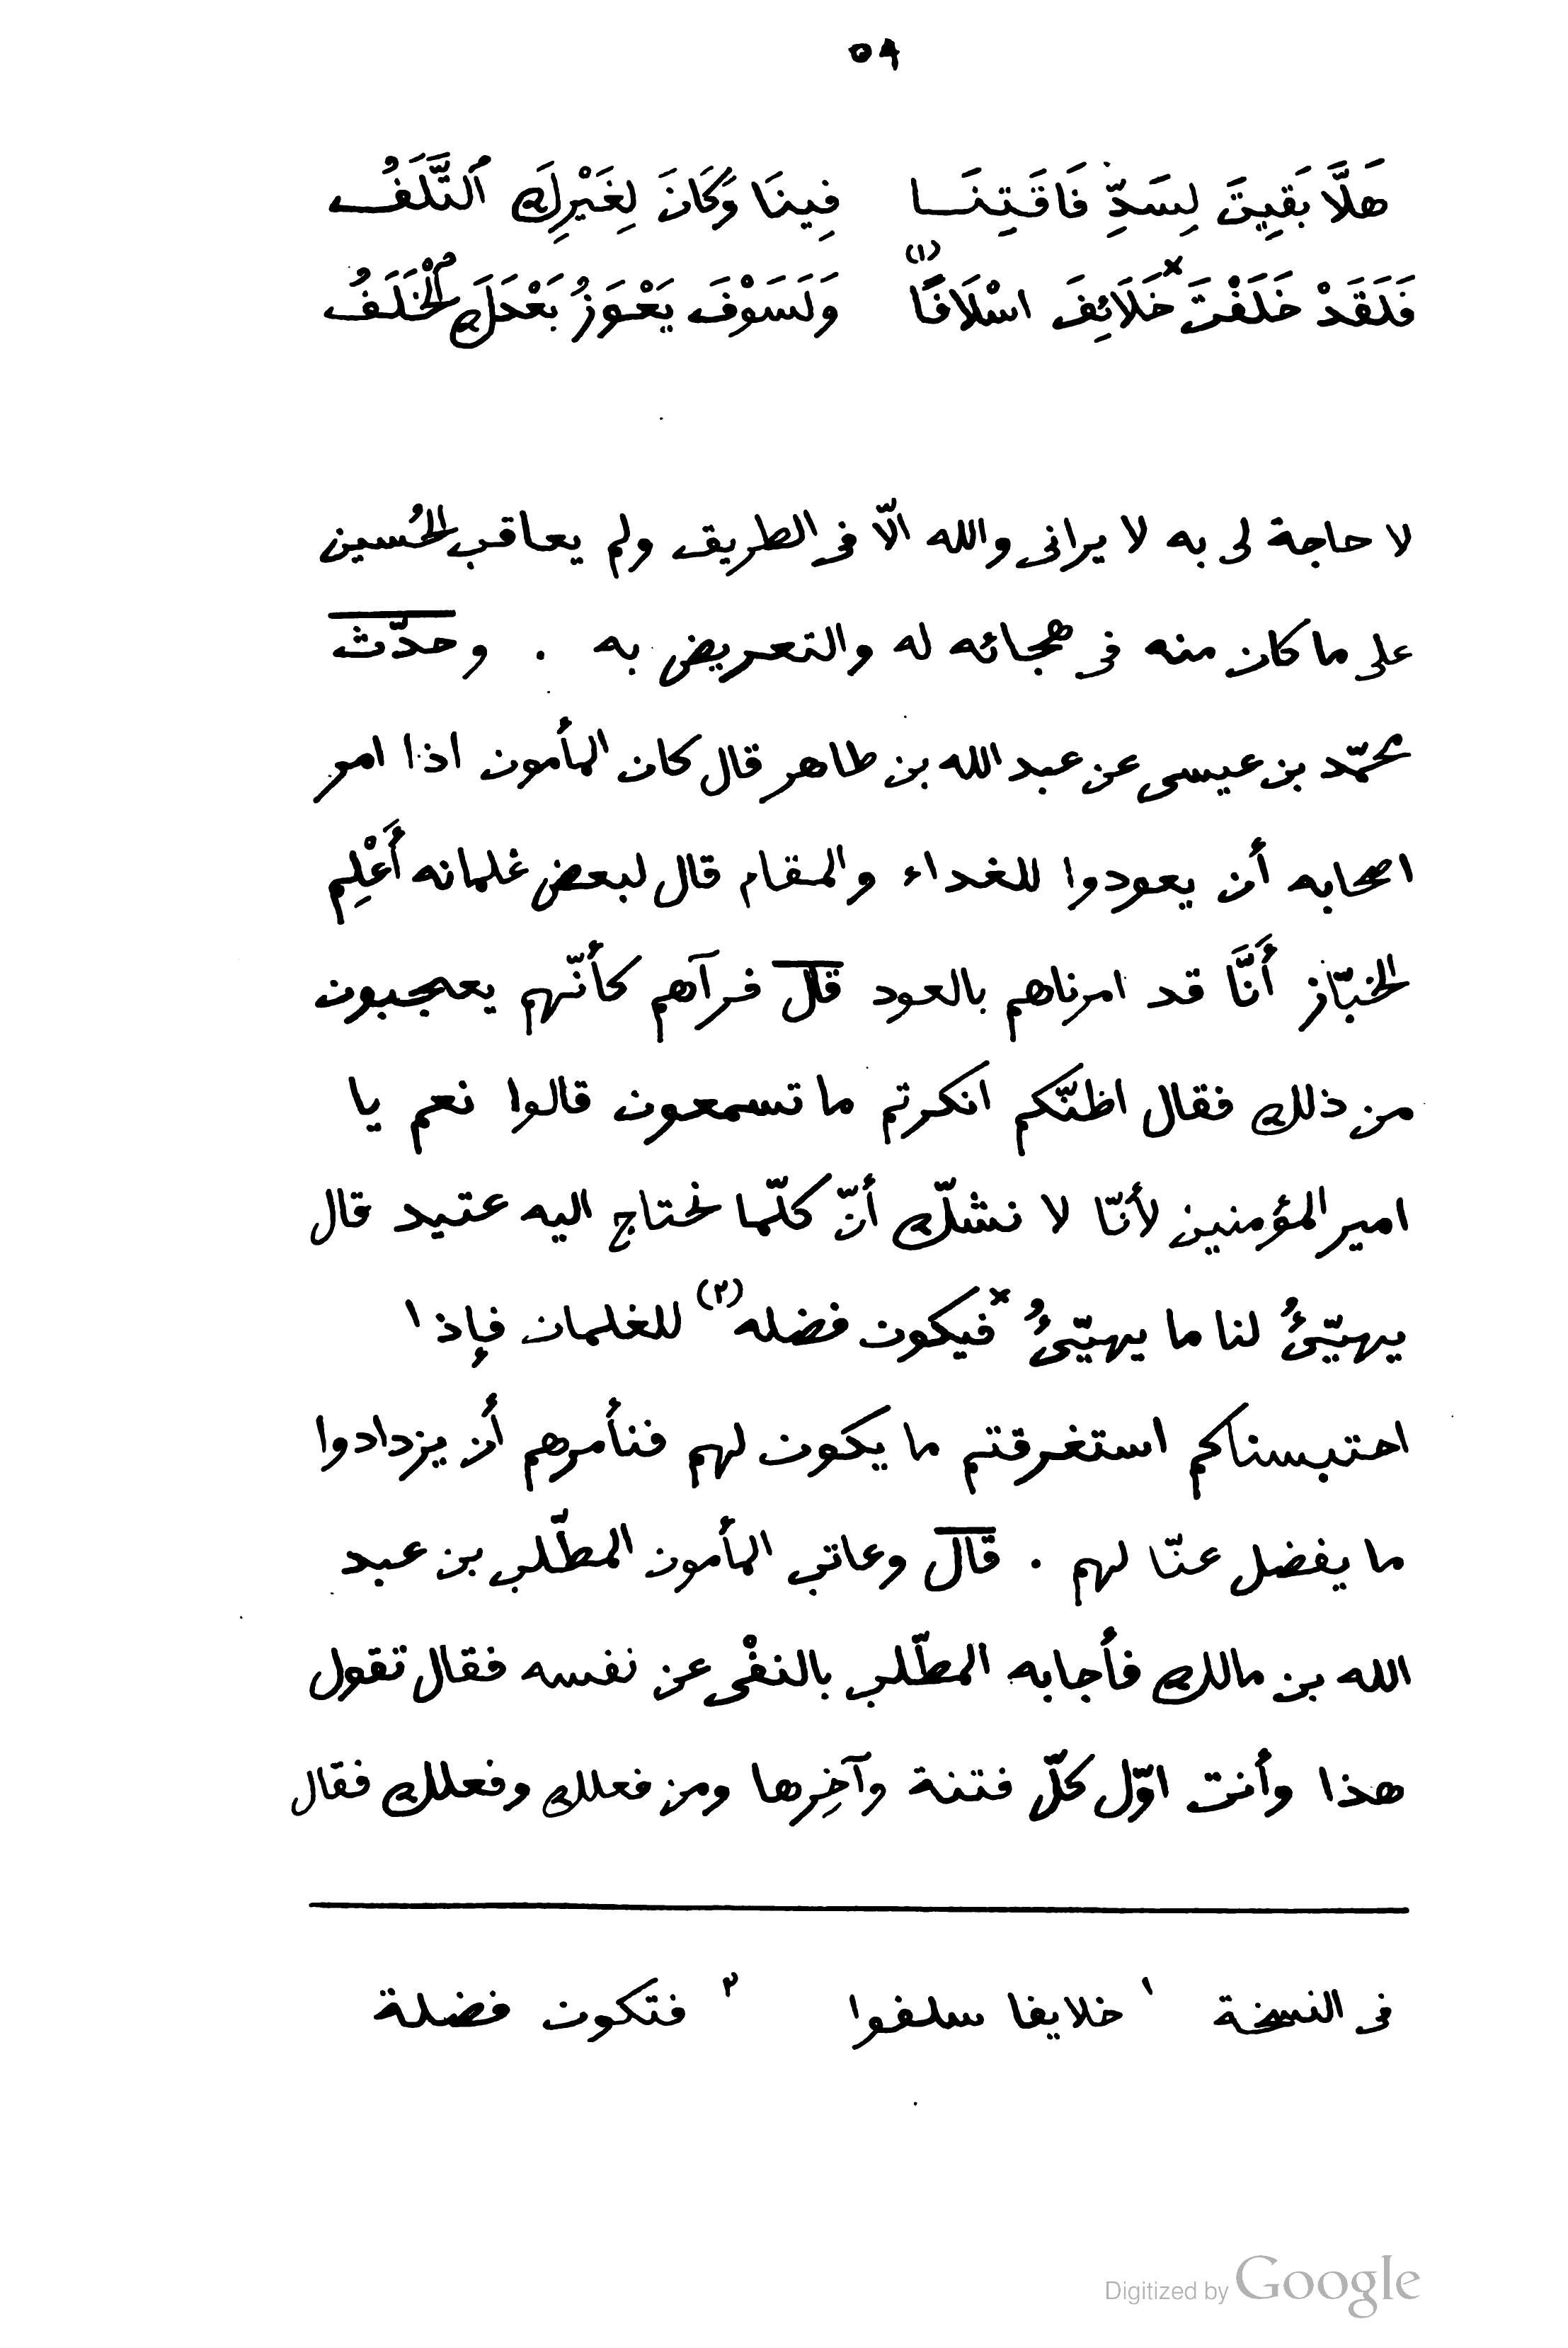 ٥٩
هَلَّا بَقِيتَ لِسَدِّ فَاقَتِنَا فِينَا وَكَانَ لِغَيْرِكَ ٱلتَّلَفُ
فَلَقَدْ خَلَفْتَ × خَلَائِفَ اسْلَافًا (١) وَلَسَوْفَ يَعْوَزُ بَعْدَكَ ٱلْخَلَفُ
لا حاجة لى به لا يرانى والله الّا فى الطريق ولم يعاقب الحُسين
على ما كان منه فى هجائه له والتعريض به . وحدّث
محمّد بن عيسى عن عبد الله بن طاهر قال كان المأمون اذا امر
اصحابه أن يعودوا للغداء والمقام قال لبعض غلمانه أَعْلِم
الخبّاز أَنَّا قد امرناهم بالعود قال فرآهم كأنّهم يعجبون
من ذلك فقال اظنّكم انكرتم ما تسمعون قالوا نعم يا
امير المؤمنين لأنّا لا نشكّ أنّ كلّما نحتاج اليه عتيد قال
يهيّئُ لنا ما يهيّئُ × فيكون فضله (٢) للغلمان فإذا
احتبسناكم استغرقتم ما يكون لهم فنأمرهم أن يزدادوا
ما يفضل عنّا لهم . قال وعاتب المأمون المطّلب بن عبد
الله بن مالك فأجابه المطّلب بالنفْى عن نفسه فقال تقول
هذا وأنت اوّل كلّ فتنة وآخِرها ومن فعلك وفعلك فقال
فى النسخة ١ خلايفا سلفوا ٢ فتكون فضلة
Digitized by Google